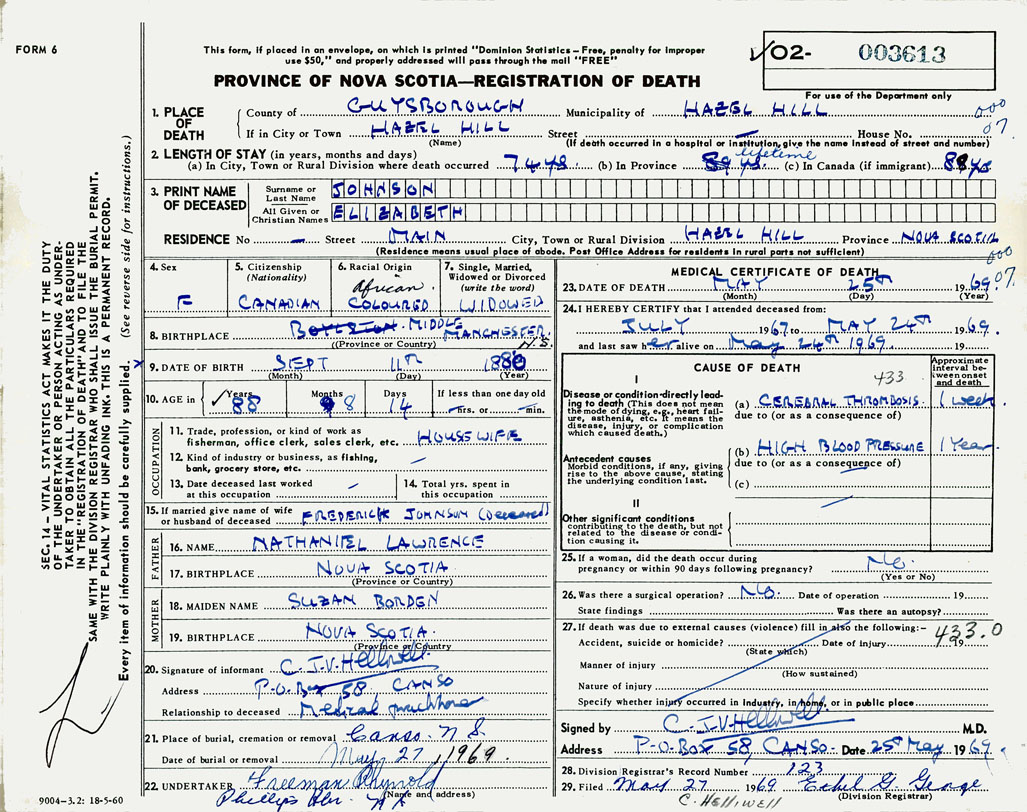 FORM 6
This form, if placed in an envelope, on which is printed "Dominion Statistics – Free, penalty for improper
use $50," and properly addressed will pass through the mail "FREE"
PROVINCE OF NOVA SCOTIA—REGISTRATION OF DEATH
02- 003613
For use of the Department only
1. PLACE OF DEATH County of GUYSBOROUGH Municipality of HAZEL HILL 000
If in City or Town HAZEL HILL Street — House No. 07.
(Name) (If death occurred in a hospital or institution, give the name instead of street and number)
2. LENGTH OF STAY (in years, months and days) lifetime
(a) In City, Town or Rural Division where death occurred 74 yrs (b) In Province yrs. (c) In Canada (if immigrant) 88 yrs
3. PRINT NAME OF DECEASED Surname or Last Name JOHNSON
All Given or Christian Names ELIZABETH
RESIDENCE No — Street MAIN City, Town or Rural Division HAZEL HILL Province NOVA SCOTIA
(Residence means usual place of abode. Post Office Address for residents in rural parts not sufficient) 000
07.
4. Sex F
5. Citizenship (Nationality) CANADIAN
6. Racial Origin African COLOURED
7. Single, Married, Widowed or Divorced (write the word) WIDOWED
8. BIRTHPLACE MIDDLE MANCHESTER. N.S.
(Province or Country)
x 9. DATE OF BIRTH SEPT 11th 1880
(Month) (Day) (Year)
10. AGE in Years 88 Months 8 Days 14 If less than one day old —hrs. or —min.
OCCUPATION
11. Trade, profession, or kind of work as
fisherman, office clerk, sales clerk, etc. HOUSEWIFE
12. Kind of industry or business, as fishing,
bank, grocery store, etc. —
13. Date deceased last worked
at this occupation —
14. Total yrs. spent in
this occupation
15. If married give name of wife
or husband of deceased FREDERICK JOHNSON (Deceased)
FATHER
16. NAME NATHANIEL LAWRENCE
17. BIRTHPLACE NOVA SCOTIA
(Province or Country)
MOTHER
18. MAIDEN NAME SUZAN BORDEN
19. BIRTHPLACE NOVA SCOTIA.
(Province or Country)
20. Signature of informant C.J.V. Helliwell
Address P.O. Box 58, CANSO
Relationship to deceased Medical practitioner
21. Place of burial, cremation or removal Canso. N S.
Date of burial or removal May 27, 1969
22. UNDERTAKER Freeman
(Name and address)
MEDICAL CERTIFICATE OF DEATH
23. DATE OF DEATH MAY 25th 1969.
(Month) (Day) (Year)
24. I HEREBY CERTIFY that I attended deceased from:
JULY 1967 to MAY 24th 1969.
and last saw her alive on May 24th 1969. 19
CAUSE OF DEATH
Approximate interval between onset and death
I 433
Disease or condition directly leading to death (This does not mean
the mode of dying, e.g., heart failure, asthenia, etc. It means the
disease, injury, or complication
which caused death.)
(a) CEREBRAL THROMBOSIS. 1 week.
due to (or as a consequence of)
Antecedent causes
Morbid conditions, if any, giving
rise to the above cause, stating
the underlying condition last.
(b) HIGH BLOOD PRESSURE 1 Year
due to (or as a consequence of)
(c)
II
Other significant conditions
contributing to the death, but not
related to the disease or condition causing it.
25. If a woman, did the death occur during
pregnancy or within 90 days following pregnancy? No.
(Yes or No)
26. Was there a surgical operation? No. Date of operation 19
State findings Was there an autopsy?
27. If death was due to external causes (violence) fill in also the following:–
433.0
Accident, suicide or homicide? Date of Injury 19
(State which)
Manner of injury
(How sustained)
Nature of injury
Specify whether injury occurred in industry, in home, or in public place
Signed by C.J.V. Helliwell M.D.
Address P.O. Box 58, CANSO. Date 25th May 1969.
28. Division Registrar's Record Number 123
29. Filed May 27 1969 Ethel G. George
(Division Registrar)
C. HELLIWELL
9004–3.2: 18-5-60
SEC. 14 – VITAL STATISTICS ACT MAKES IT THE DUTY
OF THE UNDERTAKER OR PERSON ACTING AS UNDER-
TAKER TO OBTAIN ALL THE PARTICULARS REQUIRED
IN THE "REGISTRATION OF DEATH" AND TO FILE THE
SAME WITH THE DIVISION REGISTRAR WHO SHALL ISSUE THE BURIAL PERMIT.
WRITE PLAINLY WITH UNFADING INK. THIS IS A PERMANENT RECORD.
Every item of information should be carefully supplied. (See reverse side for instructions.)